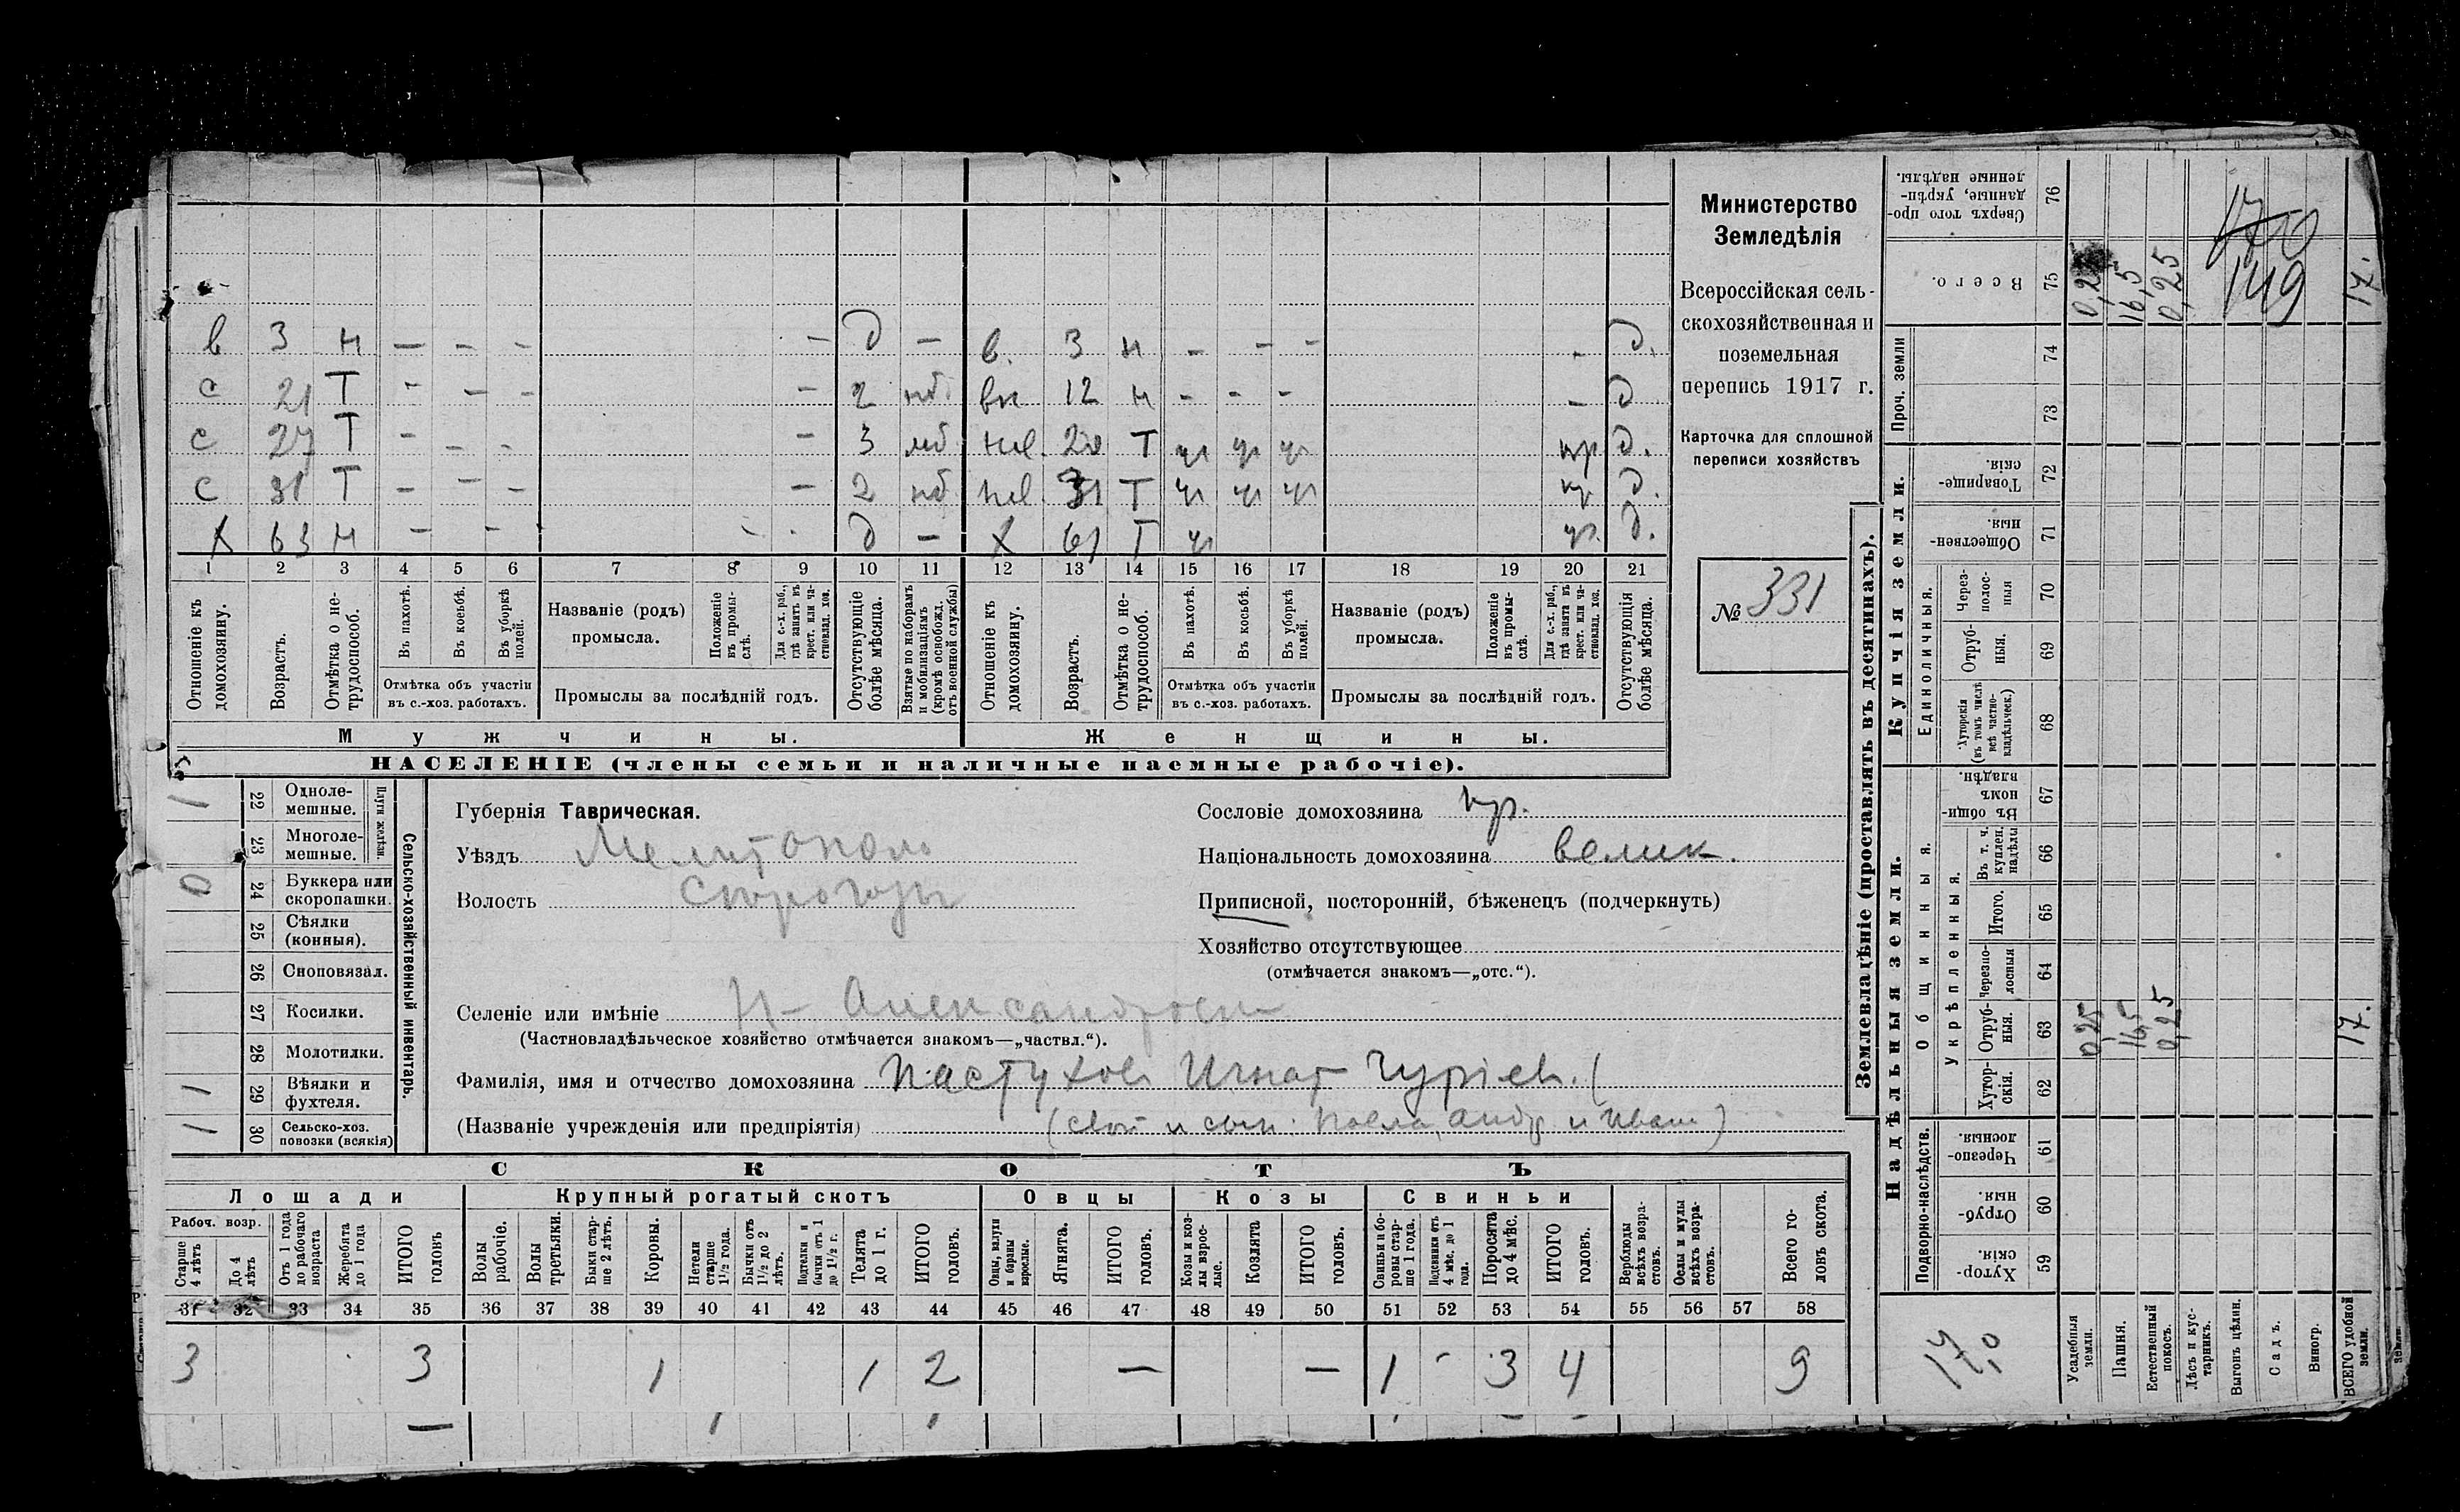 Министерство
Земледѣлія
Всероссійская сель-
скохозяйственная и
поземельная
перепись 1917 г.
Карточка для сплошной
переписи хозяйствъ
№ 331
в 3 н — — — — д — в. 3 н — — — — д.
с 21 Т — — — — 2 вн 12 н — — — — д
с 27 Т — — — — 3 20 Т д.
с 31 Т — — — — 2 31 Т д.
Х 63 н — — д — Х 61 Т д.
1 2 3 4 5 6 7 8 9 10 11 12 13 14 15 16 17 18 19 20 21
Отношеніе къ домохозяину.
Возрастъ.
Отмѣтка о не-трудоспособ.
Въ пахотѣ.
Въ косьбѣ.
Въ уборкѣ полей.
Отмѣтка объ участіи въ с.-хоз. работахъ.
Названіе (родъ) промысла.
Положеніе въ промы-слѣ.
Для с.-х. раб., гдѣ занятъ въ крест. или ча-стновлад. хоз.
Промыслы за послѣдній годъ.
Отсутствующіе болѣе мѣсяца.
Взятые по наборамъ и мобилизаціямъ (кромѣ освобожд. отъ военной службы)
Отношеніе къ домохозяину.
Возрастъ.
Отмѣтка о не-трудоспособ.
Въ пахотѣ.
Въ косьбѣ.
Въ уборкѣ полей.
Отмѣтка объ участіи въ с.-хоз. работахъ.
Названіе (родъ) промысла.
Положеніе въ промы-слѣ.
Для с.-х. раб., гдѣ занятъ въ крест. или ча-стновлад. хоз.
Промыслы за послѣдній годъ.
Отсутствующія болѣе мѣсяца.
Мужчины. Женщины.
НАСЕЛЕНІЕ (члены семьи и наличные наемные рабочіе).
Сельско-хозяйственный инвентарь.
Плуги желѣзн.
1 22 Одноле-мешные.
23 Многоле-мешные.
0 24 Буккера или скоропашки.
25 Сѣялки (конныя).
26 Сноповязал.
27 Косилки.
28 Молотилки.
1 29 Вѣялки и фухтеля.
1 30 Сельско-хоз. повозки (всякія)
Губернія Таврическая.
Уѣздъ Мелитополь
Волость
Селеніе или имѣніе
(Частновладѣльческое хозяйство отмѣчается знакомъ—„частвл.“).
Фамилія, имя и отчество домохозяина Пастухов Игнат Гуріев. (
(Названіе учрежденія или предпріятія)
Сословіе домохозяина кр.
Національность домохозяина велик.
Приписной, посторонній, бѣженецъ (подчеркнуть)
Хозяйство отсутствующее
(отмѣчается знакомъ—„отс.“).
СКОТЪ
Лошади Крупный рогатый скотъ Овцы Козы Свиньи
Рабоч. возр.
Старше 4 лѣтъ
До 4 лѣтъ
Отъ 1 года до рабочаго возраста
Жеребята до 1 года
ИТОГО головъ
Волы рабочіе.
Волы третьяки.
Быки стар-ше 2 лѣтъ.
Коровы.
Нетели старше 1½ года.
Бычки отъ 1½ до 2 лѣтъ.
Подтелки и бычки отъ 1 до 1½ г.
Телята до 1 г.
ИТОГО головъ.
Овцы, валухи и бараны взрослые.
Ягнята.
ИТОГО головъ.
Козы и коз-лы взрос-лые.
Козлята
ИТОГО головъ.
Свиньи и бо-ровы стар-ше 1 года.
Подсвинки отъ 4 мѣс. до 1 года.
Поросята до 4 мѣс.
ИТОГО головъ.
Верблюды всѣхъ возра-стовъ.
Ослы и мулы всѣхъ возра-стовъ.
Всего го-ловъ скота.
31 32 33 34 35 36 37 38 39 40 41 42 43 44 45 46 47 48 49 50 51 52 53 54 55 56 57 58
3 3 1 1 2 — — 1 - 3 4 9
Землевладѣніе (проставлять въ десятинахъ).
Купчія земли.
Надѣльныя земли.
Сверхъ того про-данные, укрѣп-ленные надѣлы. 76
Всего. 75 0,25 16,5 0,25 149 17.
Проч. земли 74
73
Товарище-скія. 72
Обществен-ныя. 71
Единоличныя.
Через-полос-ныя 70
Отруб-ныя. 69
Хуторскія (въ томъ числѣ всѣ частно-владѣльческ.) 68
Общинныя.
Въ общи-номъ владѣн. 67
Укрѣпленныя.
Въ т. ч. куплен. надѣлы 66
Итого. 65
Черезпо-лосныя 64
Отруб-ныя. 63 0,25 16,5 0,25 17.
Хутор-скія. 62
Подворно-наслѣдств.
Черезпо-лосныя. 61
Отруб-ныя. 60
Хутор-скія. 59
17,0
Усадебныя земли.
Пашня.
Естественный покосъ.
Лѣсъ и кус-тарникъ.
Выгонъ цѣлин.
Садъ.
Виногр.
ВСЕГО удобной земли.